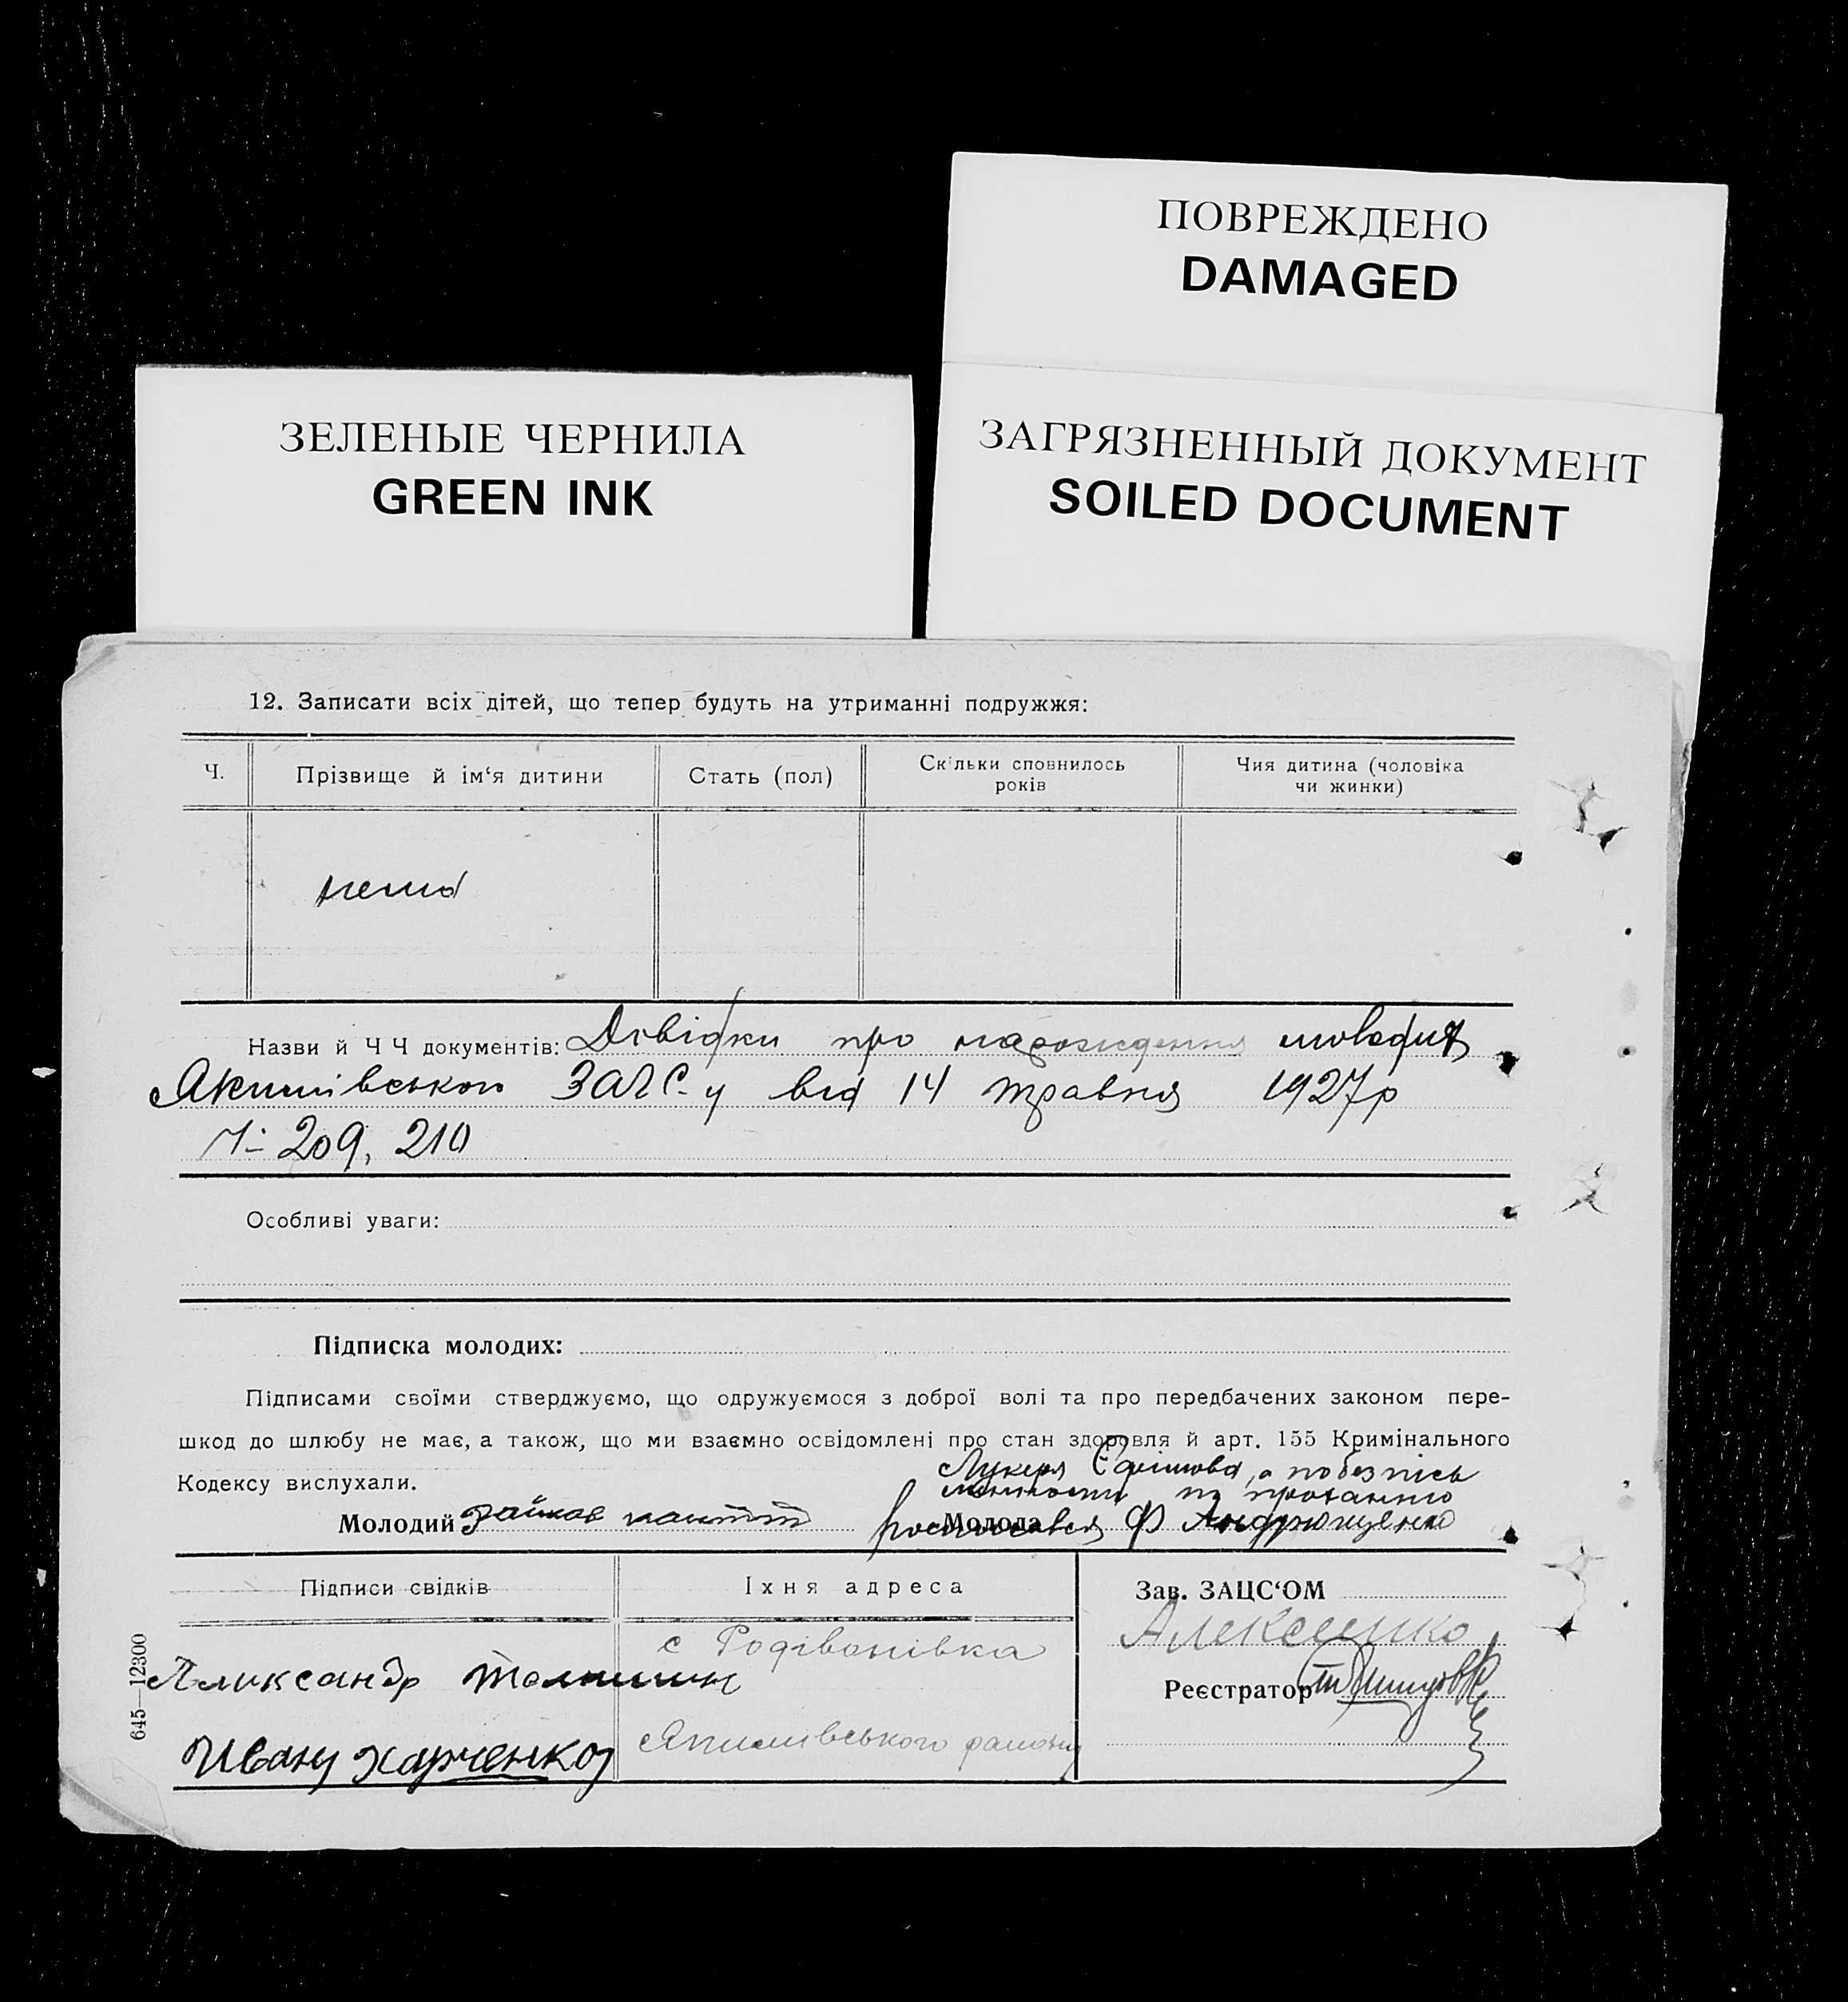 ПОВРЕЖДЕНО
DAMAGED
ЗЕЛЕНЫЕ ЧЕРНИЛА
GREEN INK
ЗАГРЯЗНЕННЫЙ ДОКУМЕНТ
SOILED DOCUMENT
12. Записати всіх дітей, що тепер будуть на утриманні подружжя:
Ч. Прізвище й ім‘я дитини Стать (пол) Скільки сповнилось років Чия дитина (чоловіка чи жинки)
нема
Назви й Ч Ч документів: Довідки про народження молодих
Якимівського ЗАГС-у від 14 травня 1927р
209, 210
Особливі уваги:
Підписка молодих:
Підписами своїми стверджуємо, що одружуємося з доброї волі та про передбачених законом пере-
шкод до шлюбу не має, а також, що ми взаємно освідомлені про стан здоровля й арт. 155 Кримінального
Кодексу вислухали.
Лукеря Єфімова, а по безпісь
менности по проханню
Молодий Молода росписався Ф Андрющенко
Підписи свідків Їхня адреса Зав. ЗАЦС‘ОМ
Алексеенко
с Родівонівка
Александр
Реєстратор
Якимівського району
Ивану Харченко
645—12300